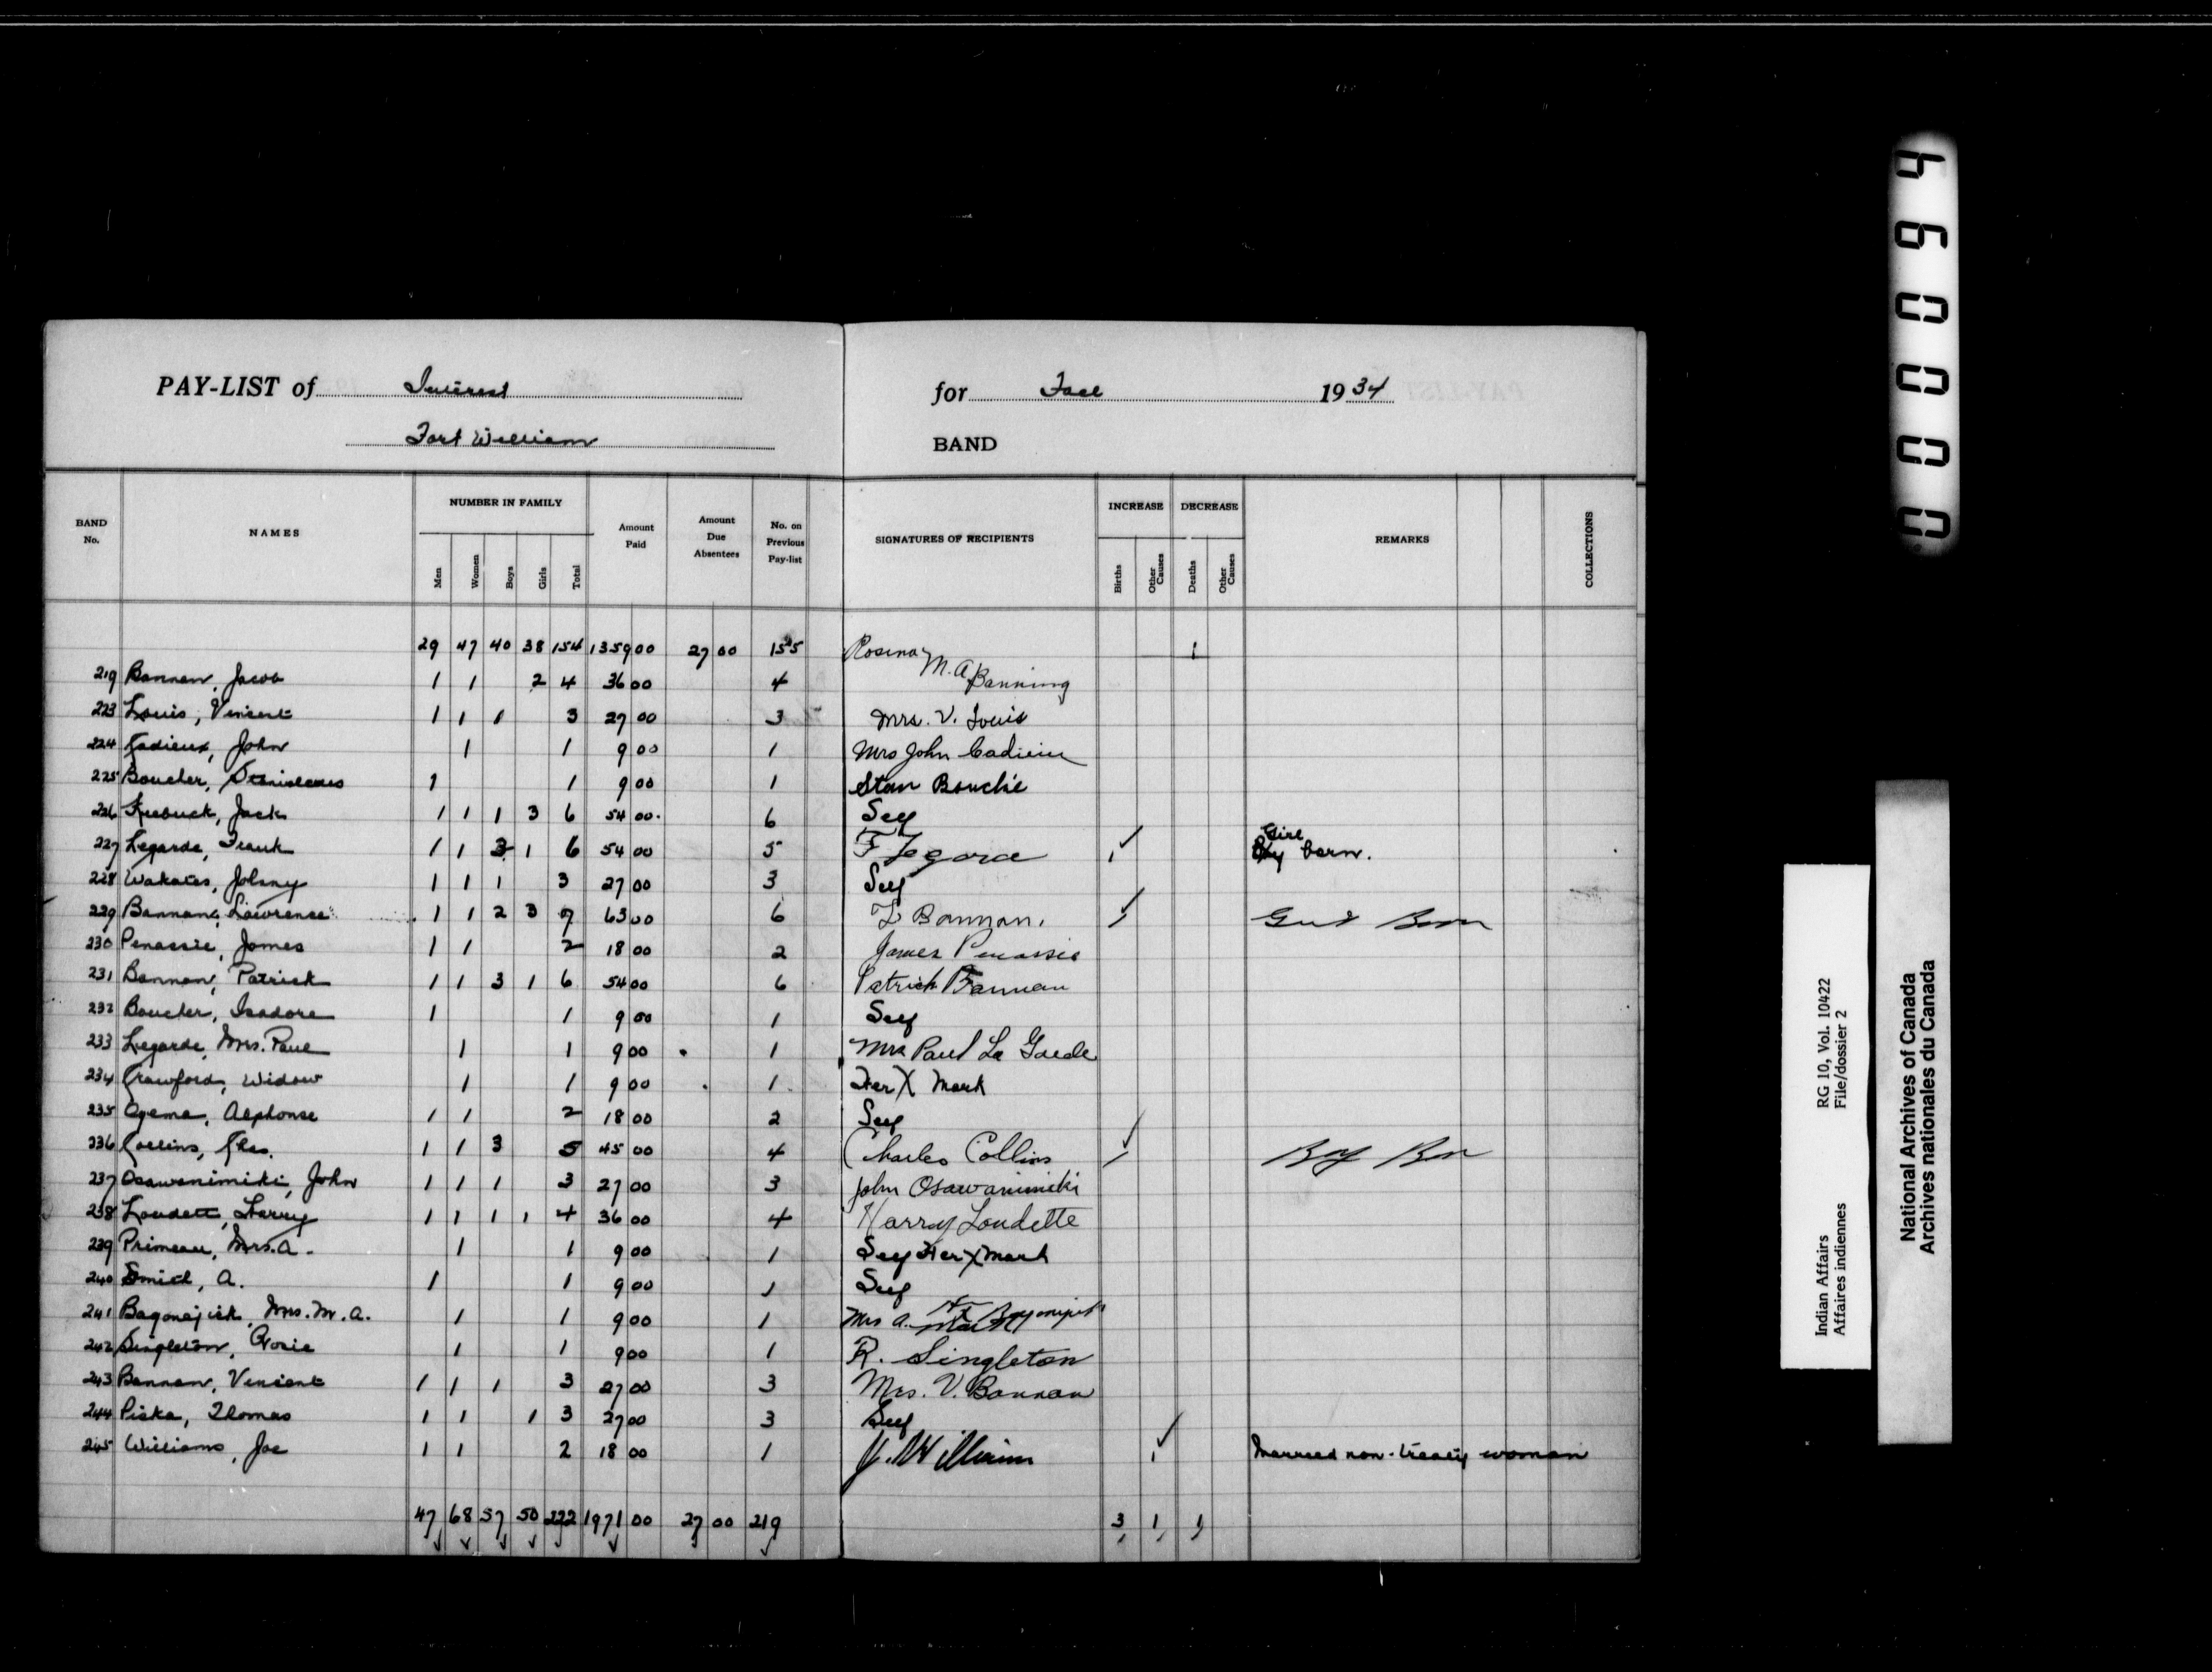 PAY-LIST of Interest for Fall 1934
Fort William BAND
BAND No. NAMES NUMBER IN FAMILY Men Women Boys Girls Total Amount Paid Amount Due Absentees No. on Previous Pay-list SIGNATURES OF RECIPIENTS INCREASE Births Other Causes DECREASE Deaths Other Causes REMARKS COLLECTIONS
29 47 40 38 154 1359 00 27 00 155 1
219 Bannan, Jacob 1 1 2 4 36 00 4 Rosina M. A. Banning
223 Louis, Vincent 1 1 1 3 27 00 3 Mrs. V. Louis
224 Cadieux, John 1 1 9 00 1 Mrs John Cadieu
225 Boucher, Stanislaus 1 1 9 00 1 Stan Bouchie
226 Jack 1 1 1 3 6 54 00 6 Self
227 Legarde, Frank 1 1 3 1 6 54 00 5 F Legarde 1 Girl born.
228 Wakates, Johnny 1 1 1 3 27 00 3 Self
229 Bannan, Lawrence 1 1 2 3 7 63 00 6 L Bannan. 1 Born
230 Penassie, James 1 1 2 18 00 2 James Penassie
231 Bannan, Patrick 1 1 3 1 6 54 00 6 Patrick Bannan
232 Boucher, Isadore 1 1 9 00 1 Self
233 Legarde, Mrs. Paul 1 1 9 00 1 Mrs Paul La Garde
234 Crawford, Widow 1 1 9 00 1 Her X Mark
235 Ogema, Alphonse 1 1 2 18 00 2 Self
236 Collins, Chas. 1 1 3 5 45 00 4 Charles Collins 1 Boy Born
237 Osawanimiki, John 1 1 1 3 27 00 3 John Osawanimiki
238 Loudett, Harry 1 1 1 1 4 36 00 4 Harry Loudette
239 Primeau, Mrs. A. 1 1 9 00 1 Self Her X Mark
240 Smith, A. 1 1 9 00 1 Self
241 Bagonajick, Mrs. M. A. 1 1 9 00 1 Mrs A.
242 Singleton, Rosie 1 1 9 00 1 R. Singleton
243 Bannan, Vincent 1 1 1 3 27 00 3 Mrs. V. Bannan
244 Piska, Thomas 1 1 1 3 27 00 3 Self
245 Williams, Joe 1 1 2 18 00 1 J. William 1 Married non-treaty woman
47 68 57 50 222 1971 00 27 00 219 3 1 1
000064
Indian Affairs RG 10, Vol. 10422
Affaires indiennes File/dossier 2
National Archives of Canada
Archives nationales du Canada